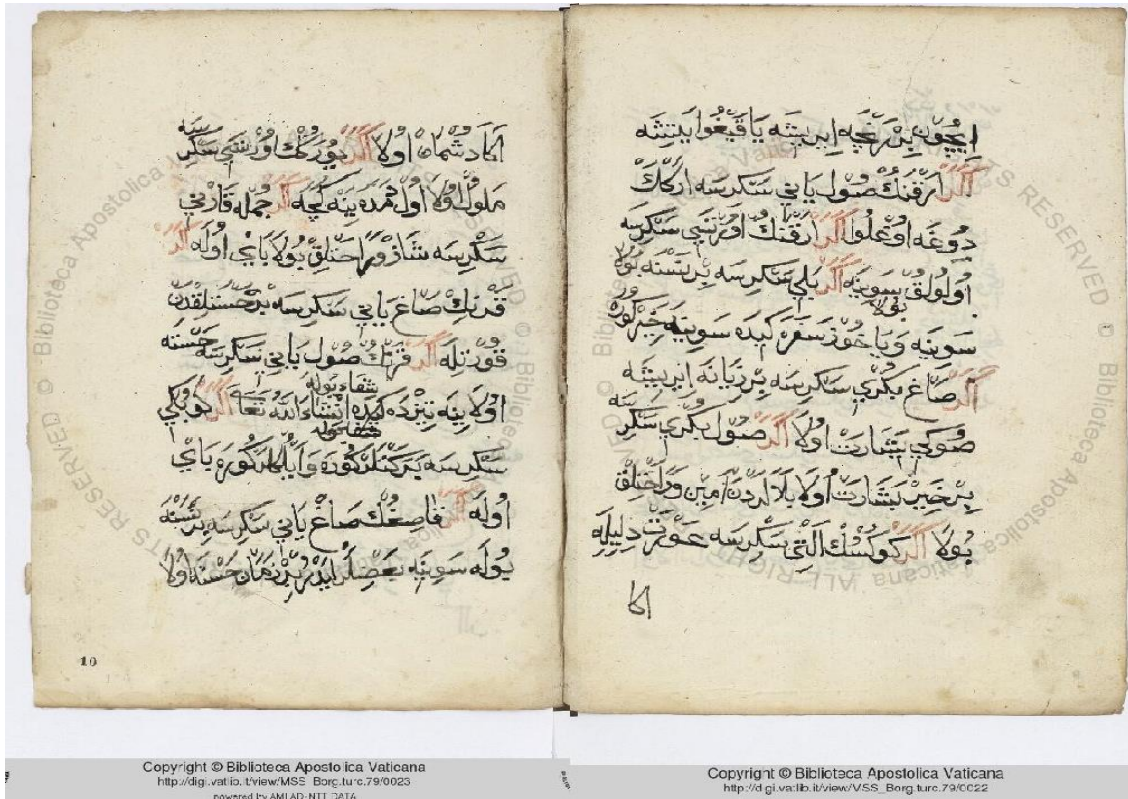 ایچون بر نجه ایریشه یا قیغوا یدیشه
اکر ارقنك صول یانی سكرسه ارکك
دوغه اوغلوا اکر ارقنك اورتسی سكرسه
اولولق سوینه اکر بلی سكرسه بر نسنه بولا
بولا
سوینه ویاخوذ سفره کیده سوینه خیر کوره
اکر صاغ بکری سكرسه بر زیانه ایریشه
ضوکی بشارت اولا اکر صول بکری سكرسه
بر خیر بشارت اولا بلالردن امین وراحتلق
بولا اکر کوکسك التی سكرسه عورت دلیله
اکا
اکا دشمان اولا اکر یورکك اورتسی سكرسه
ملول اولا اول همده ینه کچه اکر جمله قارنی
سكرسه شاذ وراحتلق بولا بای اوله اکر
قرنك صاغ یانی سكرسه بر خستلقدن
قورتله اکر قرنك صول یانی سكرسه خسته
شفاء بوله
اولا ینه تیزده کیده انشاء الله تعا اکر کوبکی
شفا بوله
سكرسه برکتلر کوره وایلکلر کوره بای
اوله اکر قاصغك صاغ یانی سكرسه بر نسنه
بوله سوینه بعضلر ایدر بر زمان خسته اولا
10
Copyright © Biblioteca Apostolica Vaticana
http://digi.vatlib.it/view/MSS_Borg.turc.79/0023
powered by AMLAD-NTT DATA
Copyright © Biblioteca Apostolica Vaticana
http://digi.vatlib.it/view/MSS_Borg.turc.79/0022